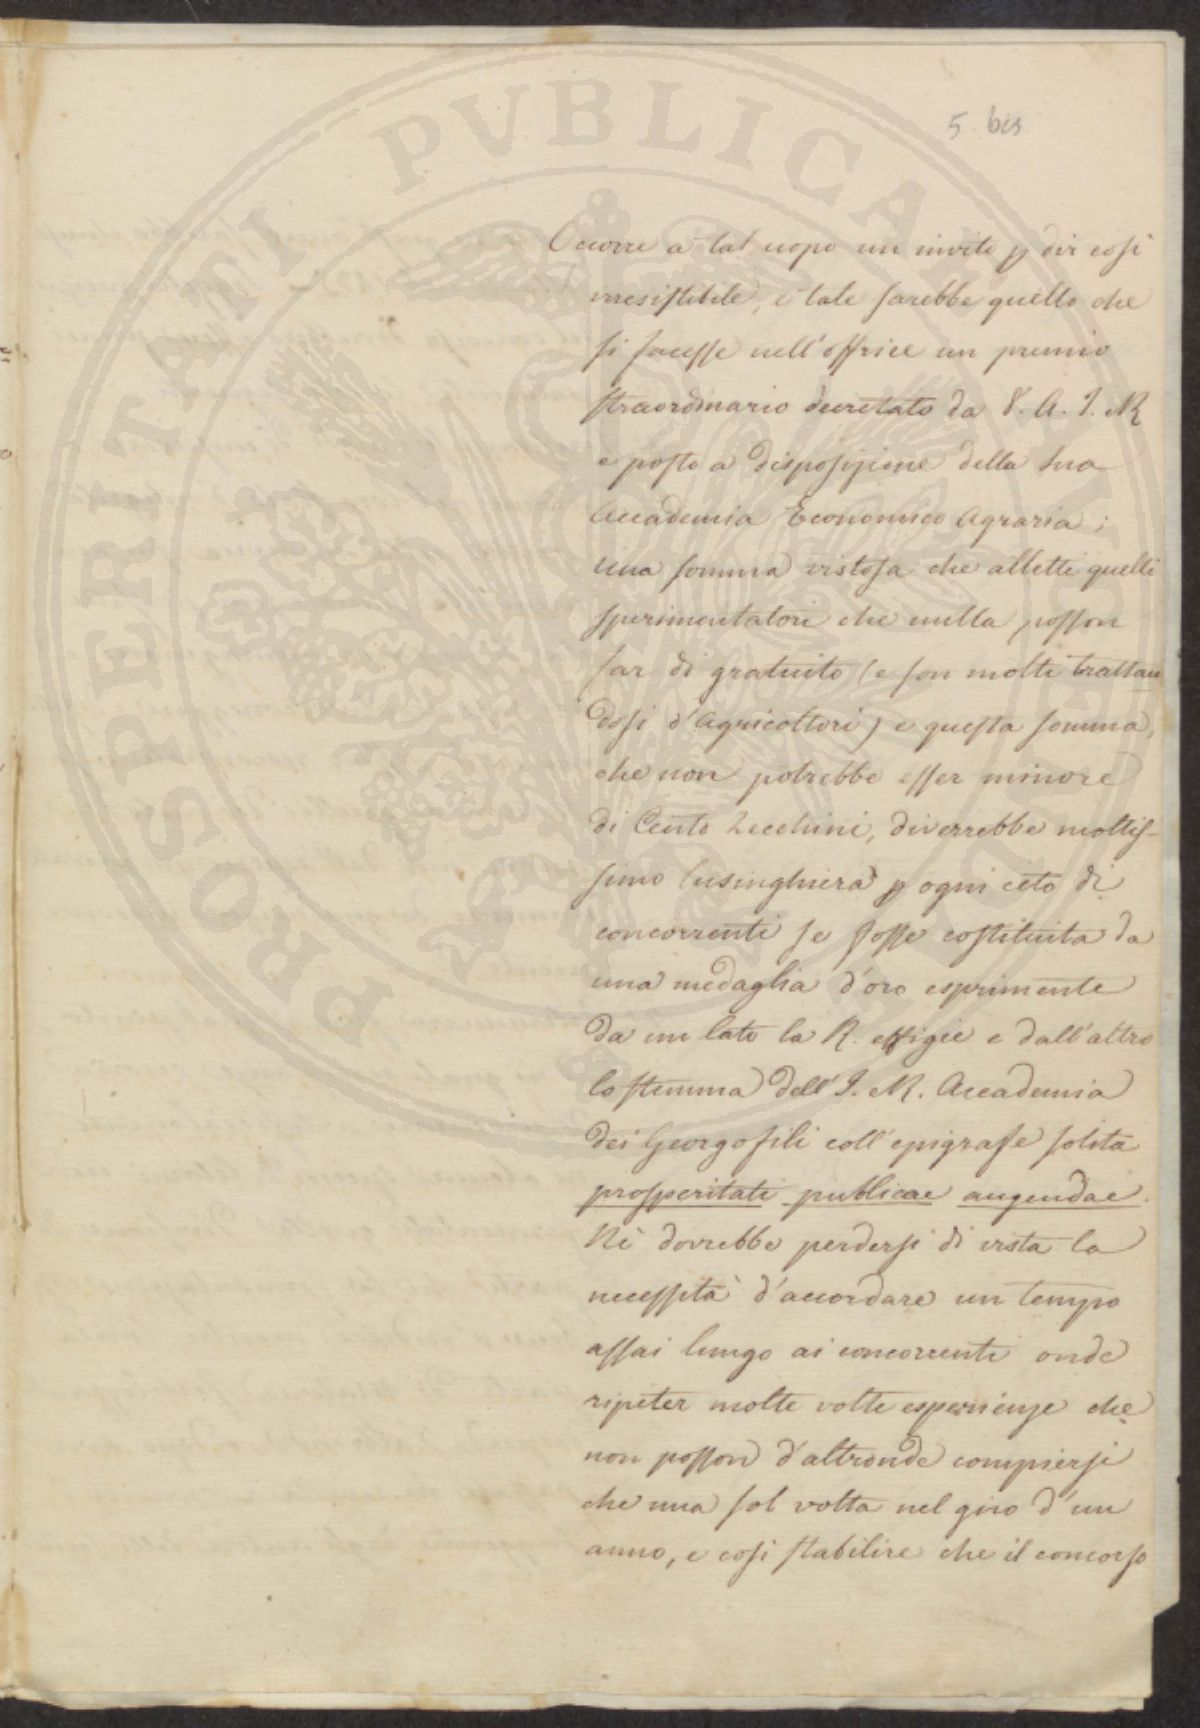 5 bis
Occorre a tal uopo un invito p dir cosi
irresistibile, e tale sarebbe quello che
si facesse nell'offrire un premio
straordinario decretato da V. A. I. R
e posto a disposizione della sua
Accademia Economico Agraria;
una somma vistosa che alletti quelli
sperimentatori che nulla posson
far di gratuito (e son molti trattan
dosi d'Agricoltori) e questa somma,
che non potrebbe esser minore
di Cento Zecchini, diverrebbe moltis-
simo lusinghiera p ogni ceto di
concorrenti se fosse costituita da
una medaglia d'oro esprimente
da un lato la R. effigie e dall'altro
lo stemma dell' I. R. Accademia
dei Georgofili coll'epigrafe solita
prosperitati publicae augendae.
Nè dovrebbe perdersi di vista la
necessità d'accordare un tempo
assai lungo ai concorrenti onde
ripeter molte volte esperienze che
non posson d'altronde compiersi
che una sol volta nel giro d'un
anno, e cosi stabilire che il concorso
PROSPERITATI PVBLICAE AVGENDAE